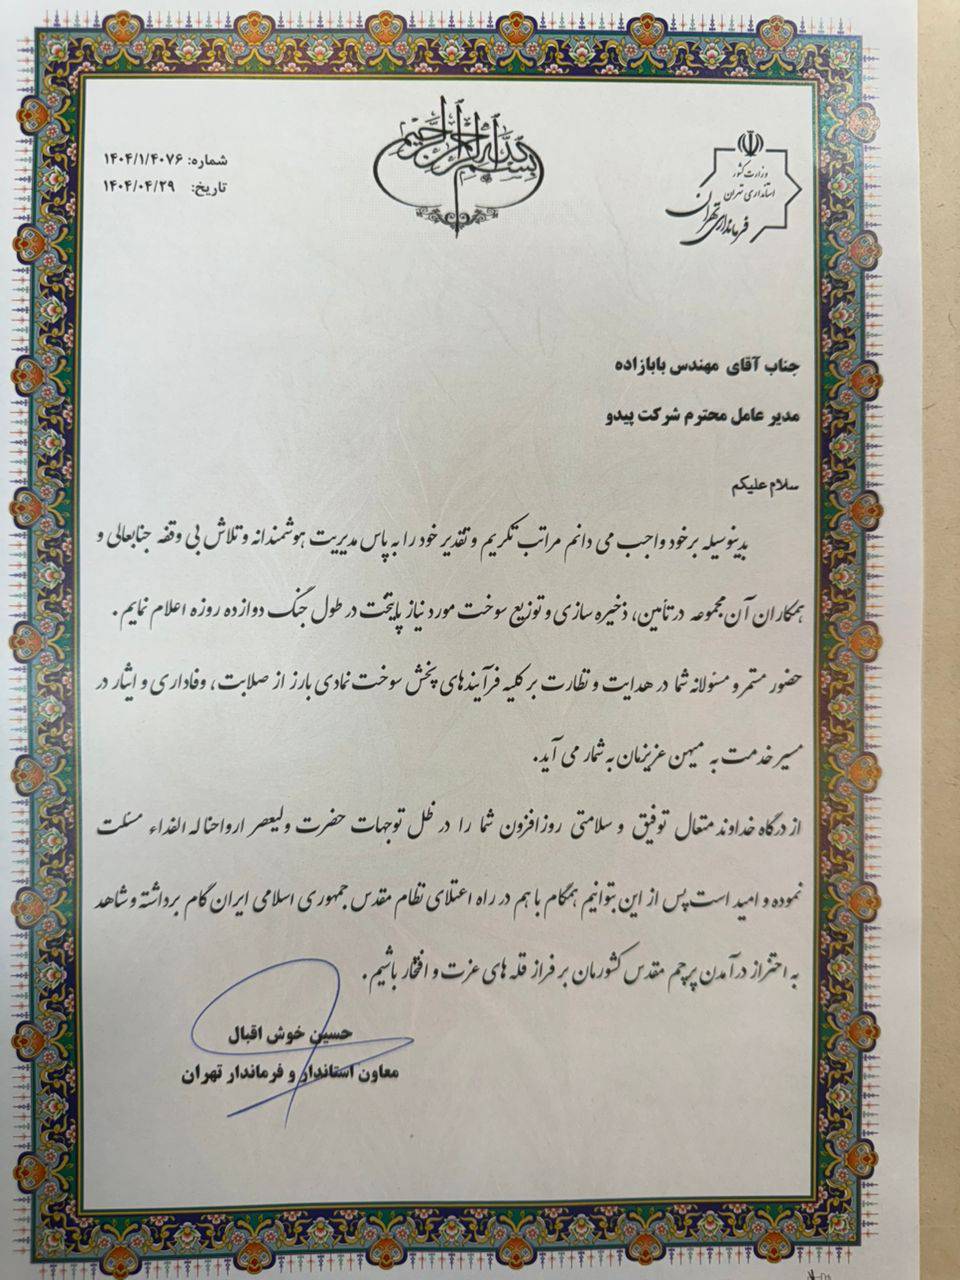 بسم الله الرحمن الرحیم
وزارت کشور
استانداری تهران
فرمانداری تهران
شماره: ۱۴۰۴/۱/۴۰۷۶
تاریخ: ۱۴۰۴/۰۴/۲۹
جناب آقای مهندس بابازاده
مدیر عامل محترم شرکت پیدو
سلام علیکم
بدینوسیله برخود واجب می دانم مراتب تکریم و تقدیر خود را به پاس مدیریت هوشمندانه و تلاش بی وقفه جنابعالی و
همکاران آن مجموعه در تأمین، ذخیره سازی و توزیع سوخت مورد نیاز پایتخت در طول جنگ دوازده روزه اعلام نمایم.
حضور مستمر و مسئولانه شما در هدایت و نظارت بر کلیه فرآیندهای پخش سوخت نمادی بارز از صلابت، وفاداری و ایثار در
مسیر خدمت به میهن عزیزمان به شمار می آید.
از درگاه خداوند متعال توفیق و سلامتی روزافزون شما را در ظل توجهات حضرت ولیعصر ارواحنا له الفداء مسئلت
نموده و امید است پس از این بتوانیم همگام با هم در راه اعتلای نظام مقدس جمهوری اسلامی ایران گام برداشته و شاهد
به احتزاز درآمدن پرچم مقدس کشورمان بر فراز قله های عزت و افتخار باشیم.
حسین خوش اقبال
معاون استاندار و فرماندار تهران